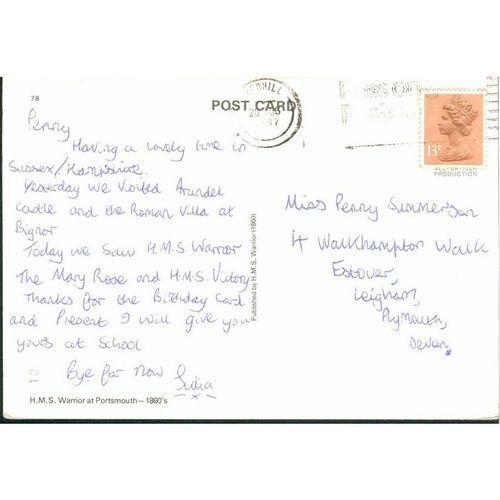 78
POST CARD
REDHILL
1987
13P
PRODUCTION
Penny
Having a lovely time in
Sussex/Hampshire.
Yesterday we Visited Arundel
castle and the Roman Villa at
Bignor
Today we Saw H.M.S Warrior
The Mary Rose and H.M.S. Victory
Thanks for the Birthday Card
and Present I will give you
yours at School
Bye for now Julia
x x
Published by H.M.S. Warrior (1860)
Miss Penny Summerson
4 Walkhampton Walk
Estover,
Leigham,
Plymouth,
Devon.
H.M.S. Warrior at Portsmouth—1860's